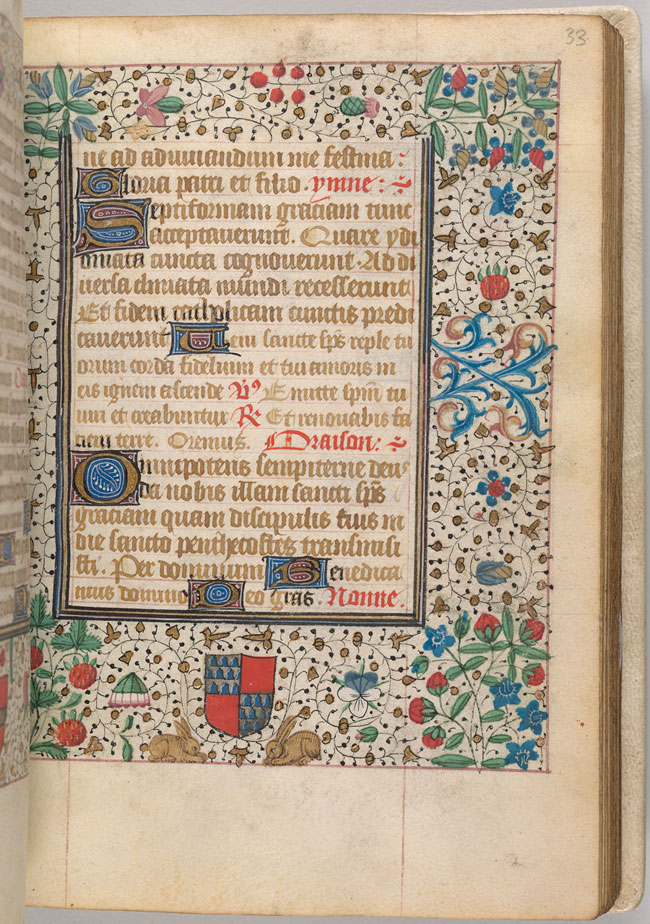 33
ne ad adiuuandum me festina :
Gloria patri et filio. ymne :
Septiformam graciam tunc
acceptauerunt. Quare ydi
mata cuncta cognouerunt. Ad di
uersa climata mundi recesserunt
Et fidem catholicam cunctis predi
cauerunt Veni sancte sps reple tu
orum corda fidelium et tui amoris in
eis ignem ascende V⁹ Emitte spm tu
um et creabuntur R Et renouabis fa
ciem terre. Oremus. Oraison :
Omnipotens sempiterne deus
da nobis illam sancti sps
graciam quam discipulis tuis in
die sancto penthecostes transmisi
sti. Per dominum Benedica
mus domino Deo gras. Nonne.